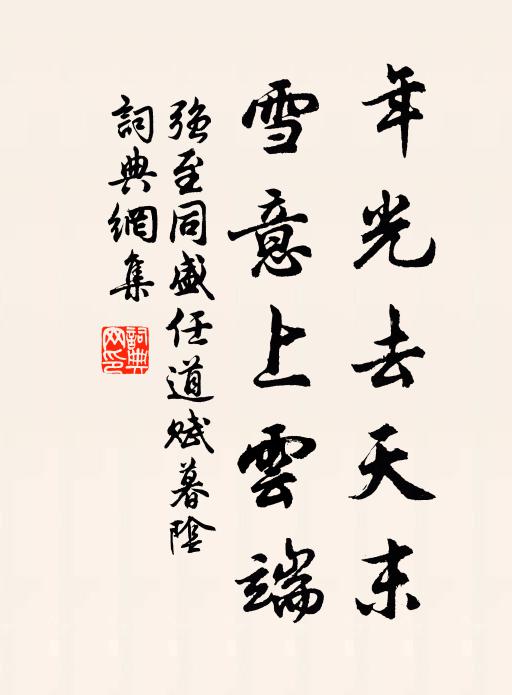 年光去天末
雪意上雲端
強至同盛任道賦暮陰
詞典網集
詞典
网印